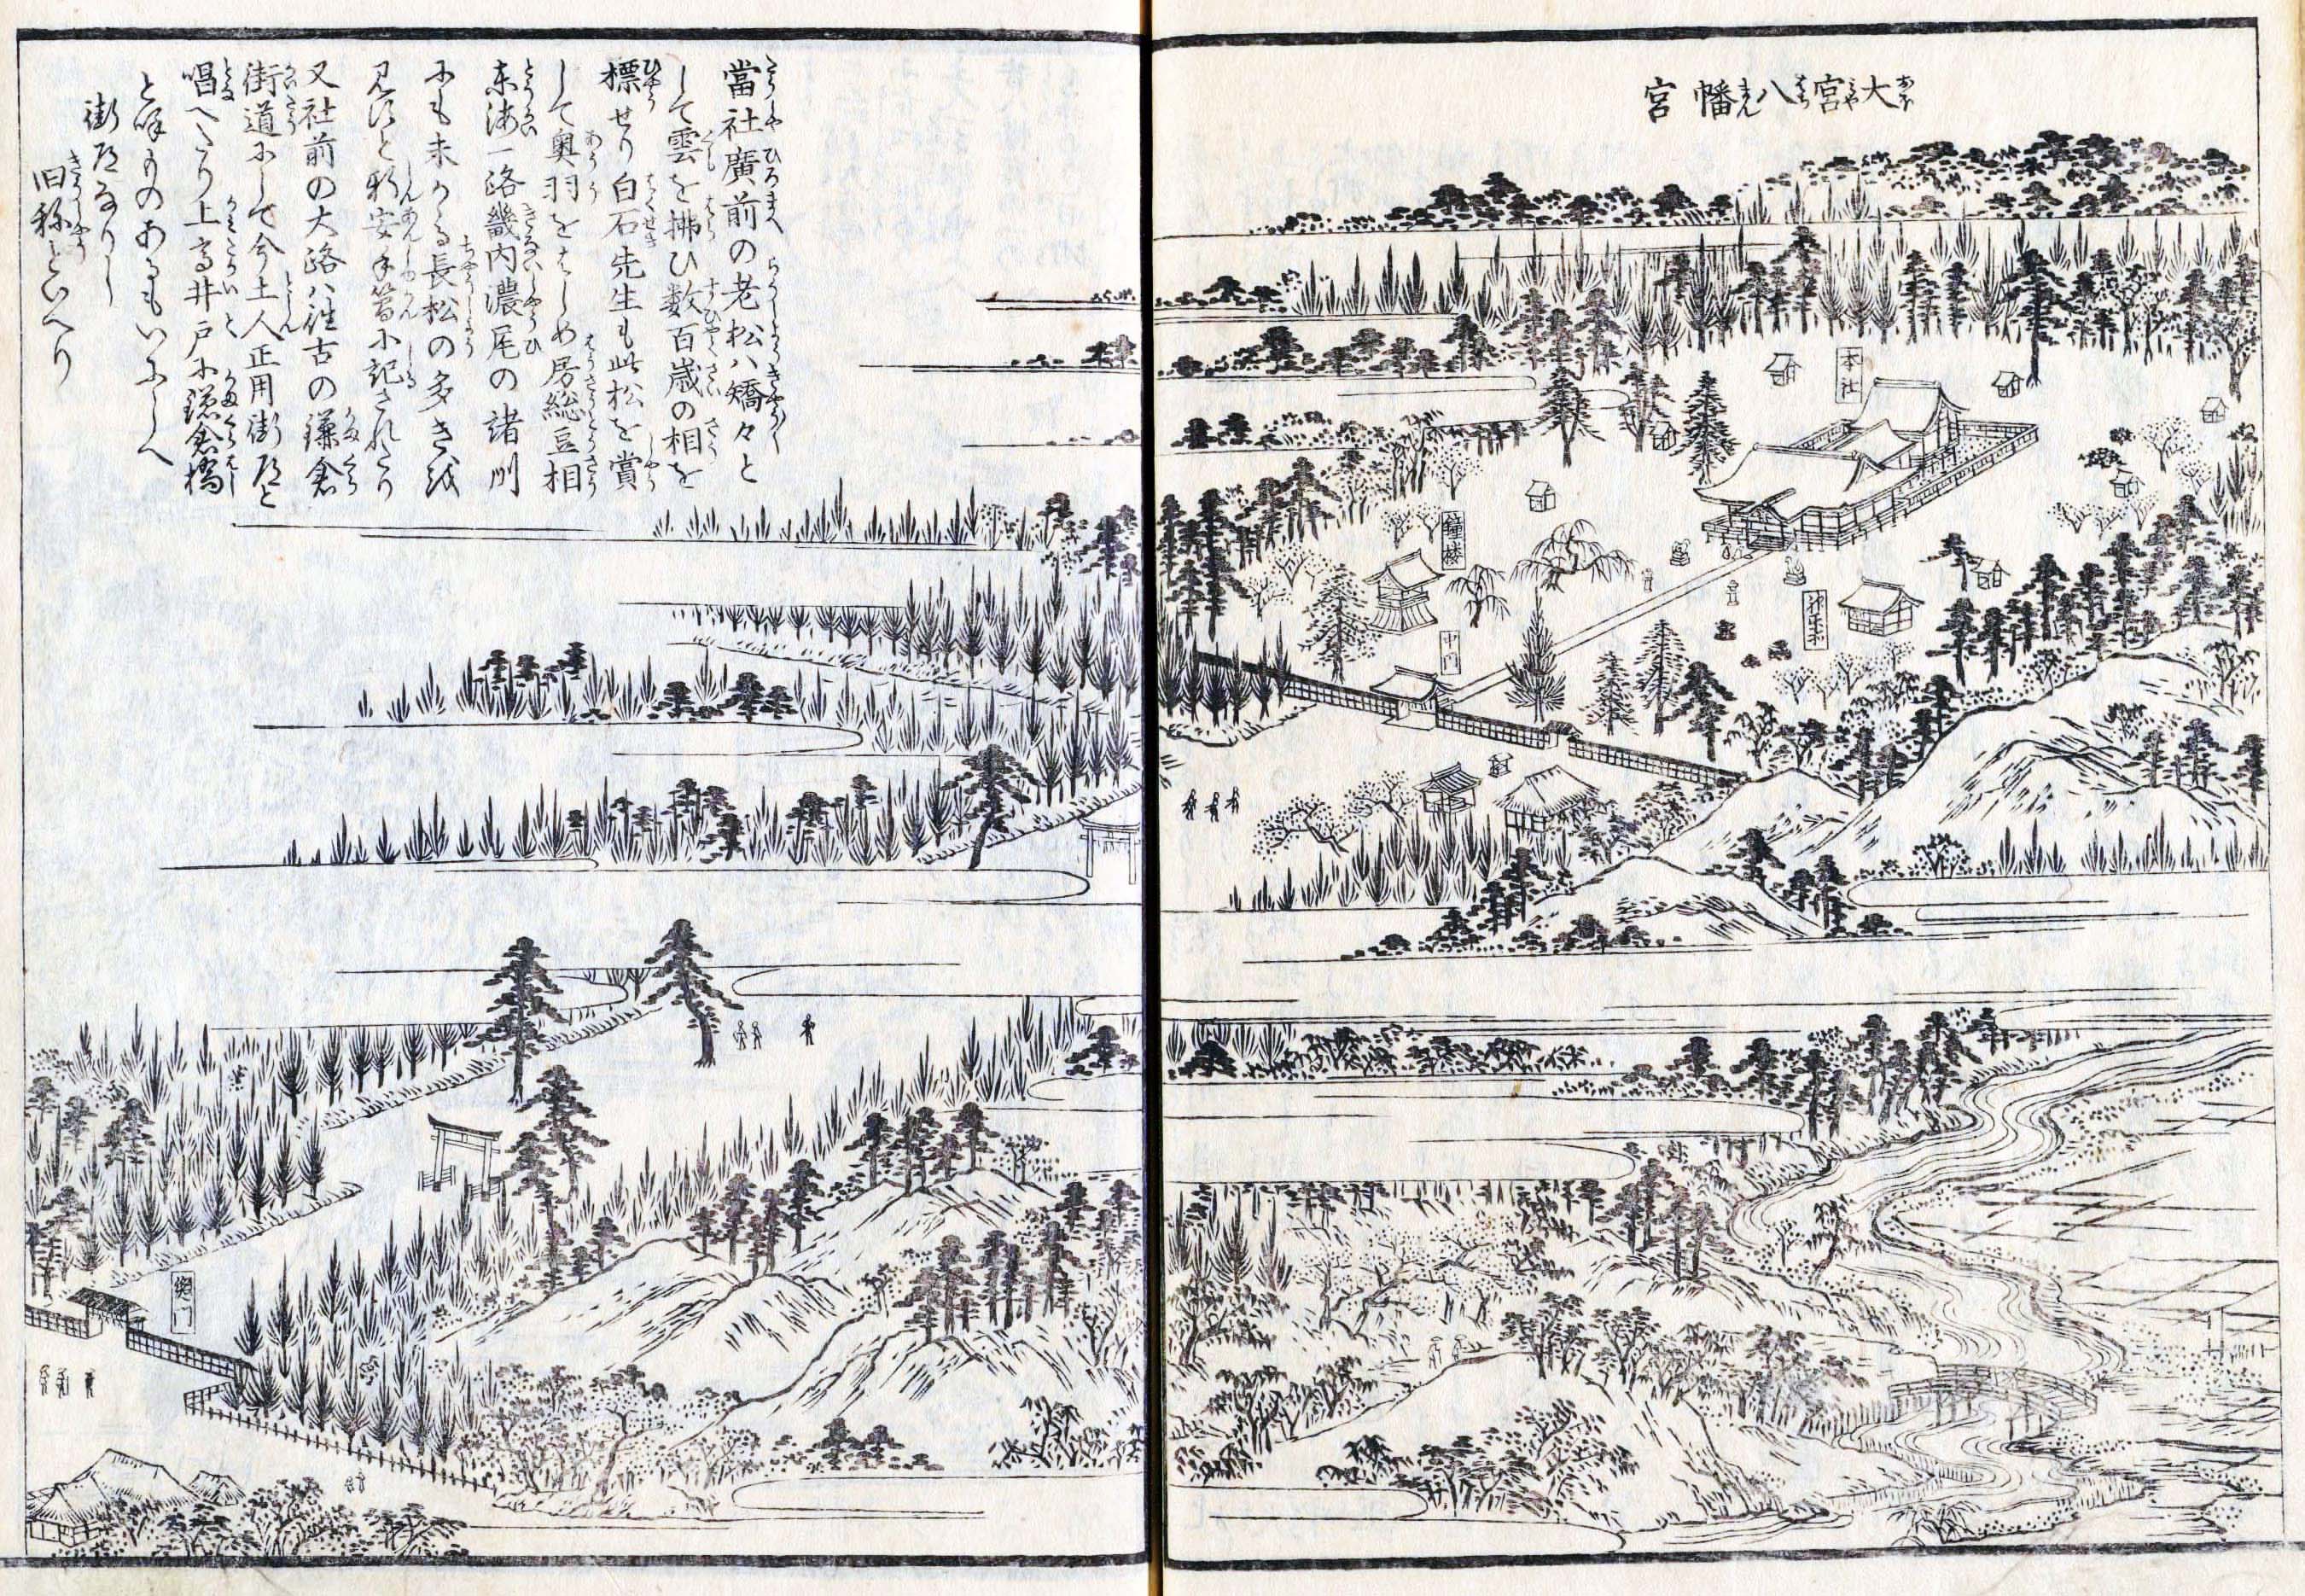 大宮八幡宮
本社
鐘楼
中門
神楽所
當社廣前の老松ハ矯々と
して雲を拂ひ数百歳の相を
標せり白石先生も此松を賞
して奥羽をはしめ房総豆相
東海一路畿内濃尾の諸州
にも未かゝる長松の多きを
見すと新安手簡に記されたり
又社前の大路ハ往古の鎌倉
街道にして今土人正用街道と
唱へたり上高井戸に鎌倉橋
と号るものあるもいにしへ
街道なりし
旧称といへり
惣門